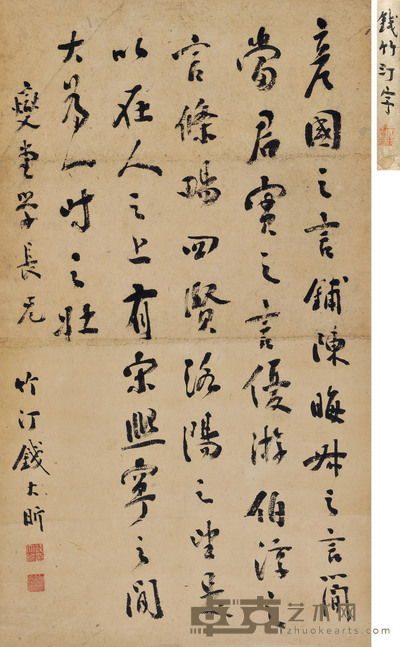 錢竹汀字
彦國之言鋪陳晦叔之言簡
當君實之言優游伯淳之
言條暢四賢洛陽之望是
以在人之上有宋熙寧之間
大為一時之壯
燮堂学長兄
竹汀錢大昕
卓克艺术网
zhuokearts.com